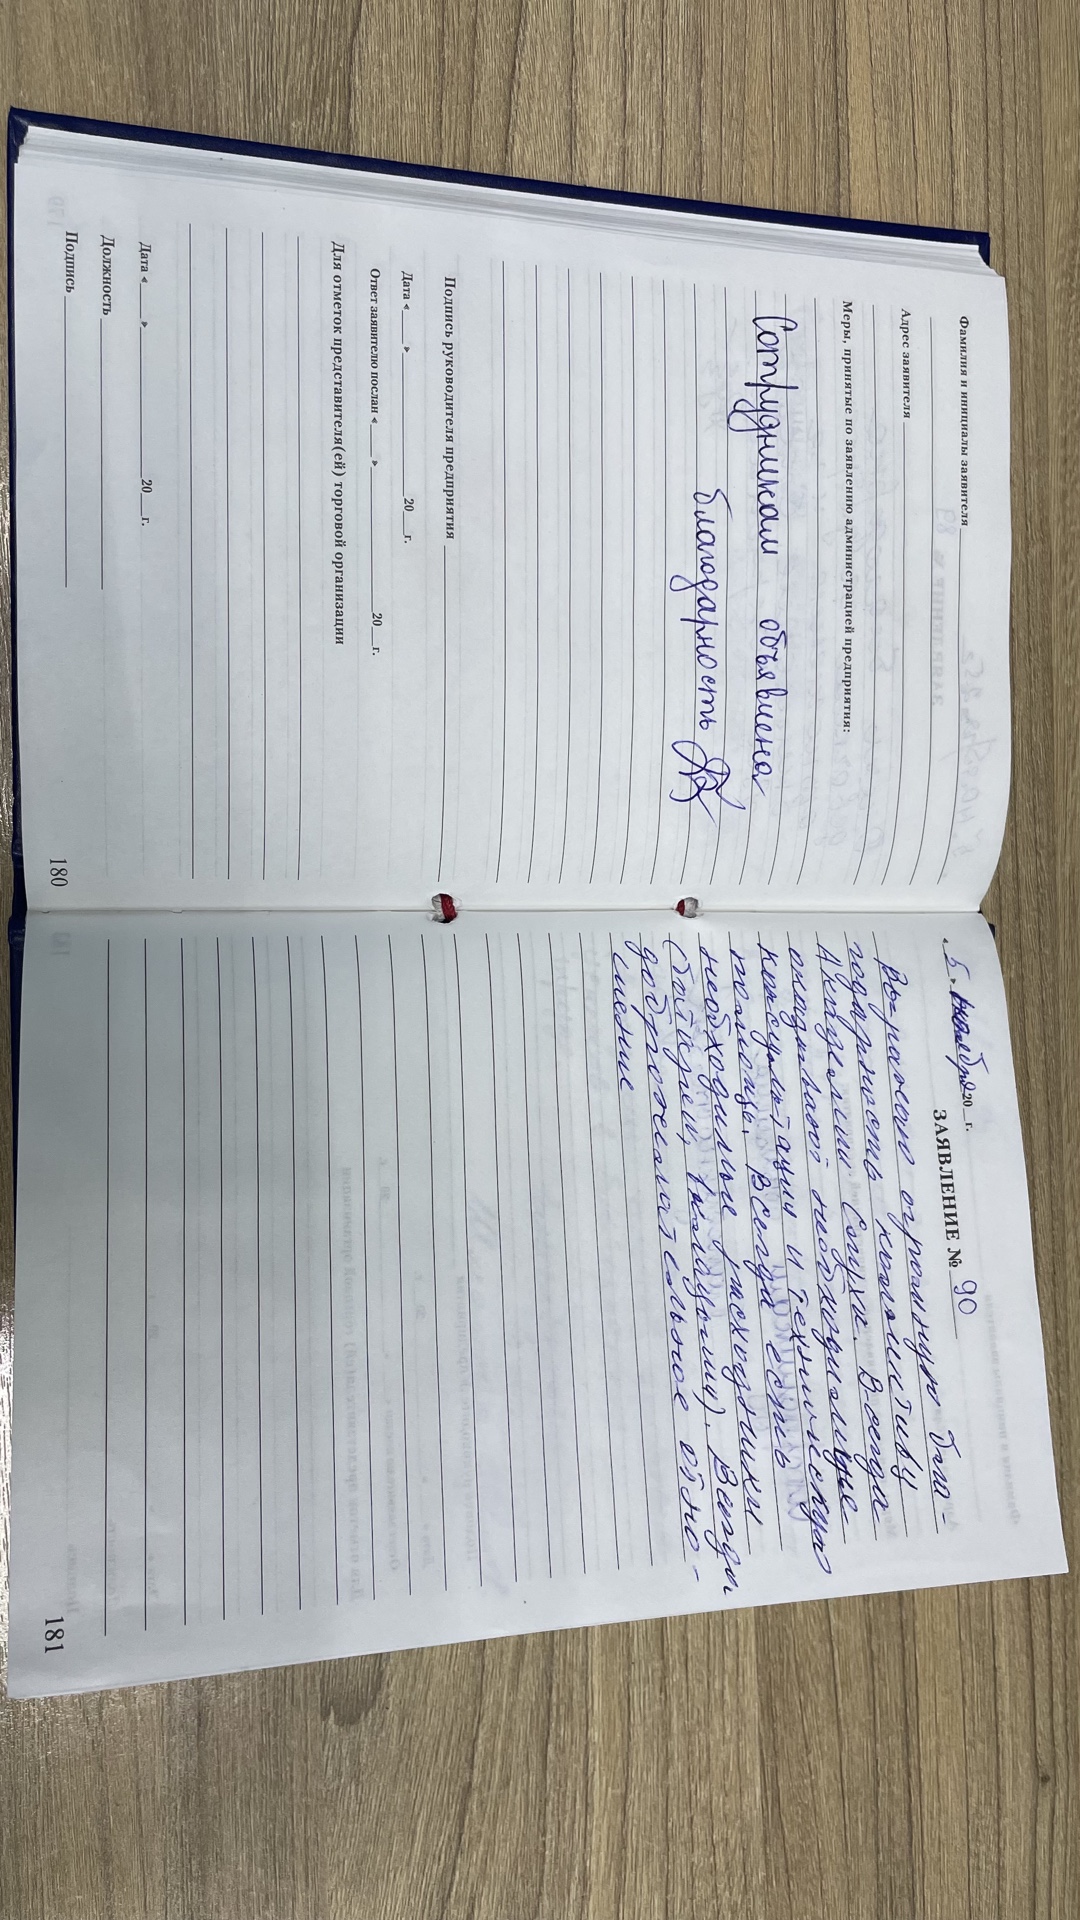 Фамилия и инициалы заявителя
Адрес заявителя
Меры, принятые по заявлению администрацией предприятия:
Сотрудникам объявлена
благодарность
Подпись руководителя предприятия
Дата « » 20 г.
Ответ заявителю послан « » 20 г.
Для отметок представителя(ей) торговой организации
Дата « » 20 г.
Должность
Подпись
180
« 5 » 20 г.
ЗАЯВЛЕНИЕ № 90
Выражаю огромную бла-
годарность коллективу
Академии Слуха. Всегда
оказывают необходимые
консультации и техническую
помощь. Всегда есть
необходимые расходники
(батареи, вкладыши). Всегда
доброжелательное отно-
шение
181